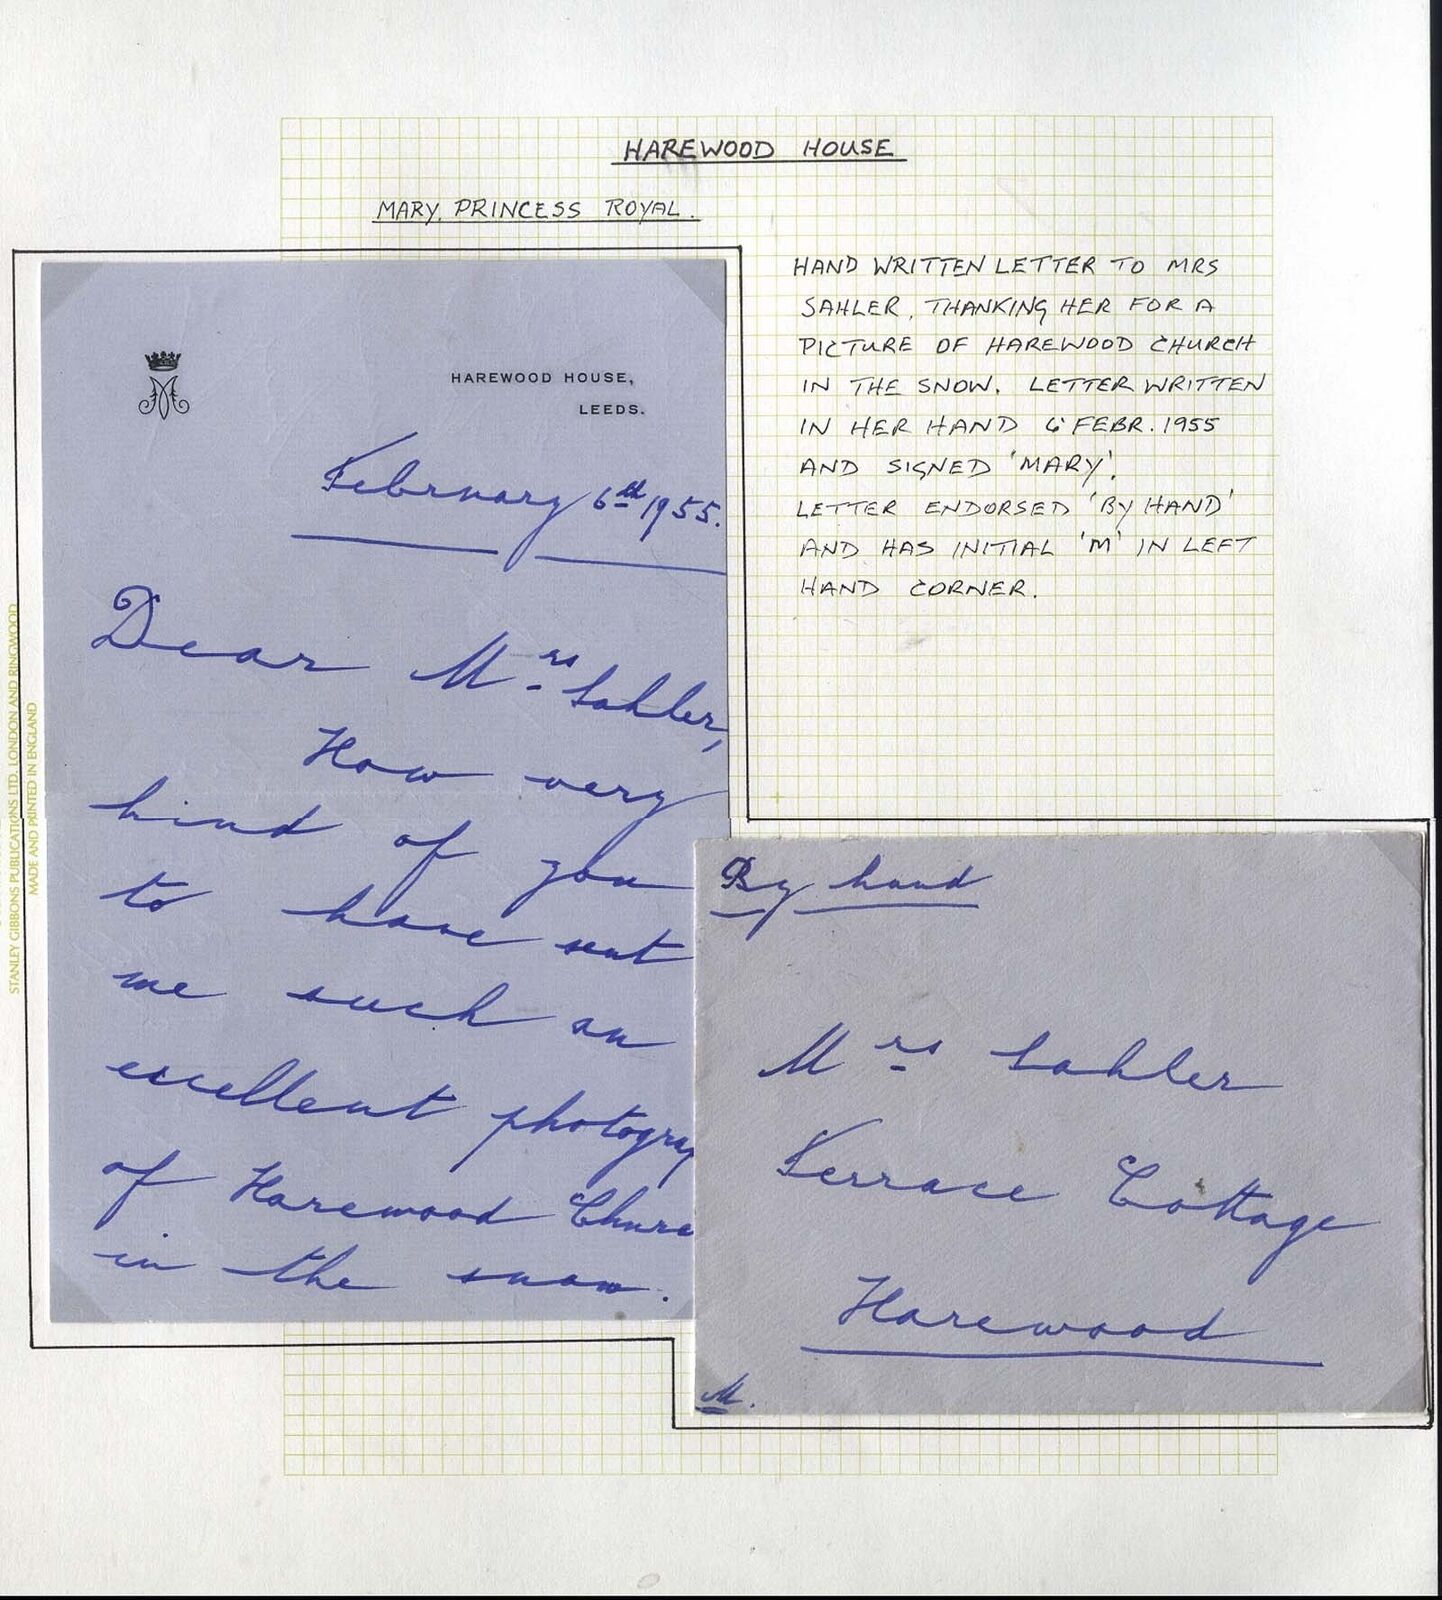 HAREWOOD HOUSE
MARY, PRINCESS ROYAL.
HAND WRITTEN LETTER TO MRS
SAHLER, THANKING HER FOR A
PICTURE OF HAREWOOD CHURCH
IN THE SNOW. LETTER WRITTEN
IN HER HAND 6 FEBR. 1955
AND SIGNED 'MARY'.
LETTER ENDORSED 'BY HAND'
AND HAS INITIAL 'M' IN LEFT
HAND CORNER.
HAREWOOD HOUSE,
LEEDS.
February 6th 1955.
Dear Mrs Sahler,
How very
kind of you
to have sent
me such an
excellent photograp
of Harewood Churc
in the snow.
By hand
Mrs Sahler
Terrace Cottage
Harewood
M.
STANLEY GIBBONS PUBLICATIONS LTD. LONDON AND RINGWOOD
MADE AND PRINTED IN ENGLAND